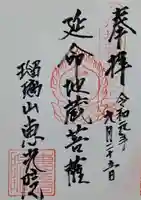 奉拝
令和元年
九月二十六日
延命地蔵菩薩
瑠璃山真光院